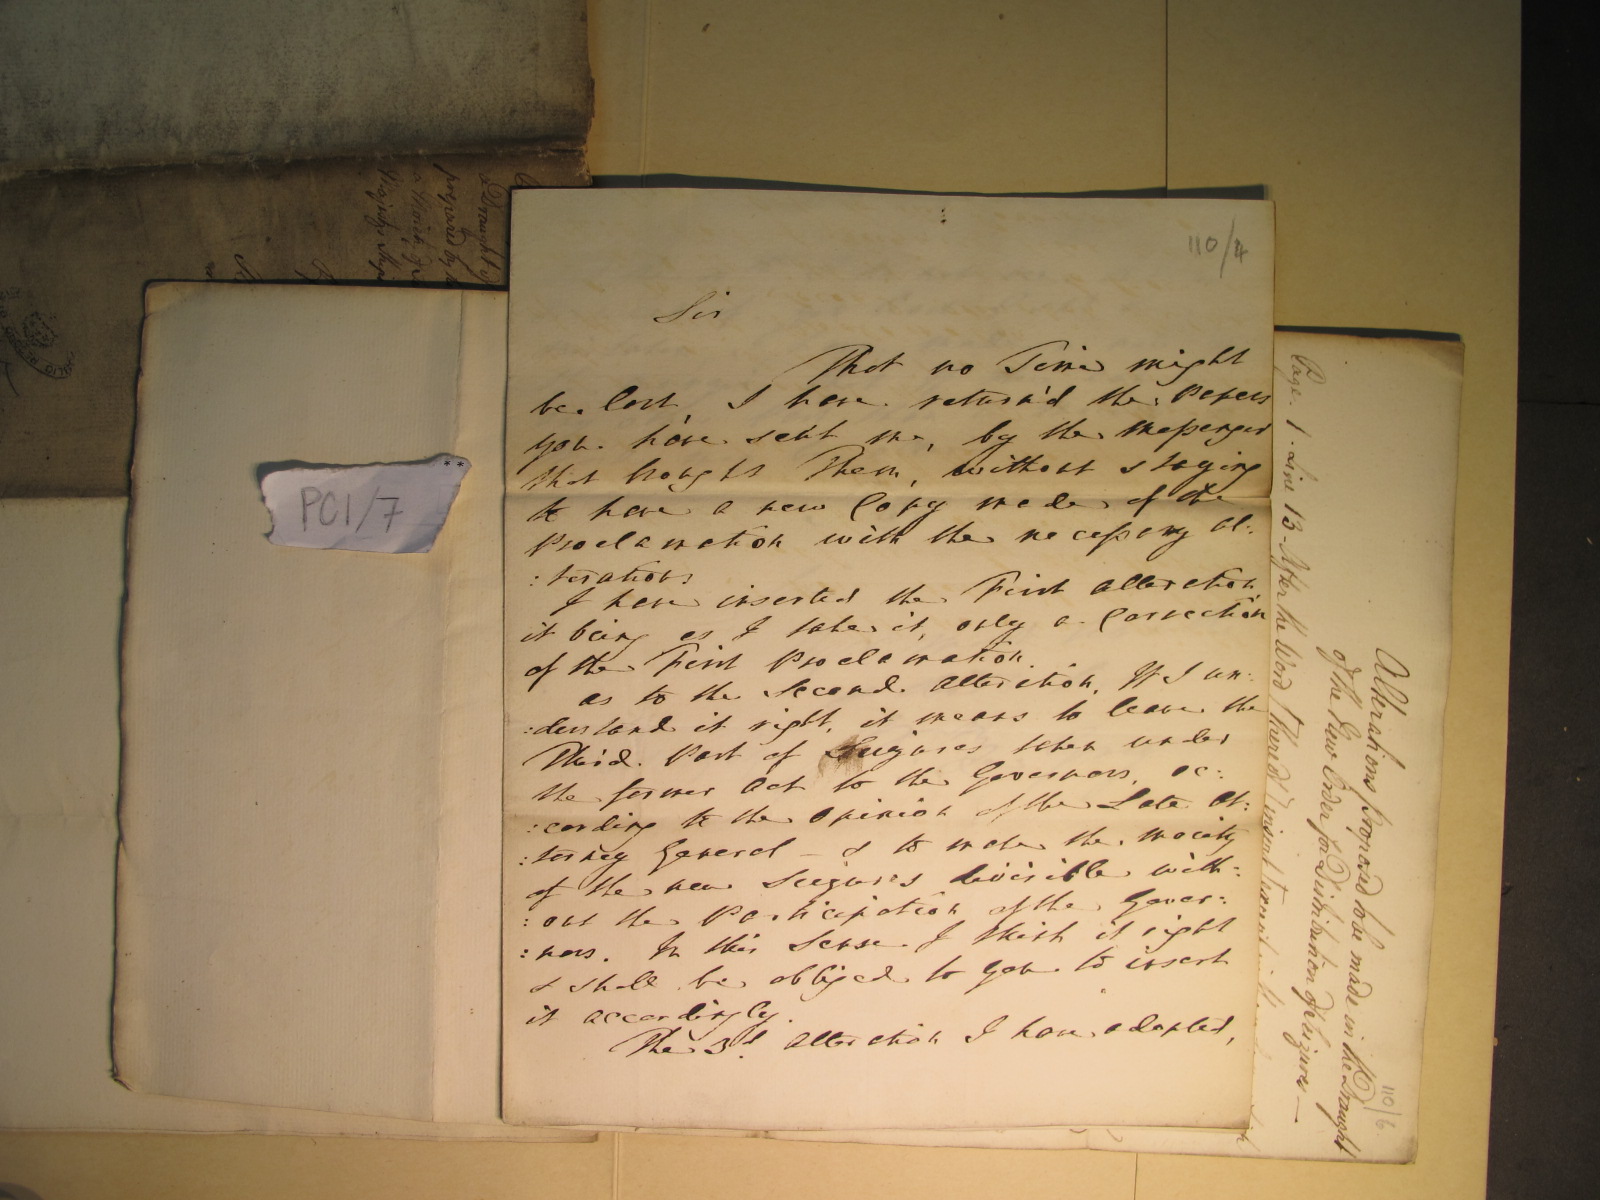 110/4
Sir
That no Time might
be lost, I have return'd the Papers
you have sent me, by the Messenger
that brought Them, without staying
to have a new Copy made of the
Proclamation with the necessary al:
:terations
I have inserted the First alteration
it being as I take it, only a Correction
of the First Proclamation.
as to the Second alteration, If I un:
:derstand it right, it means to leave the
Third Part of Seizures taken under
the former Act to the Governors, ac:
:cording to the Opinion of the Late At:
:torney General — & to make the moiety
of the new Seizures divisible with:
:out the Participation of the Gover:
:nors. In this Sense I think it right
& shall be obliged to you to insert
it accordingly.
The 3d. alteration I have adopted,
PC1/7
Alterations proposed to be made in the Draught
of the New Order for Distribution of Seizures —
Page 1. Line 13 - After the Word Thereof insert
110/6
Draught
prepared by